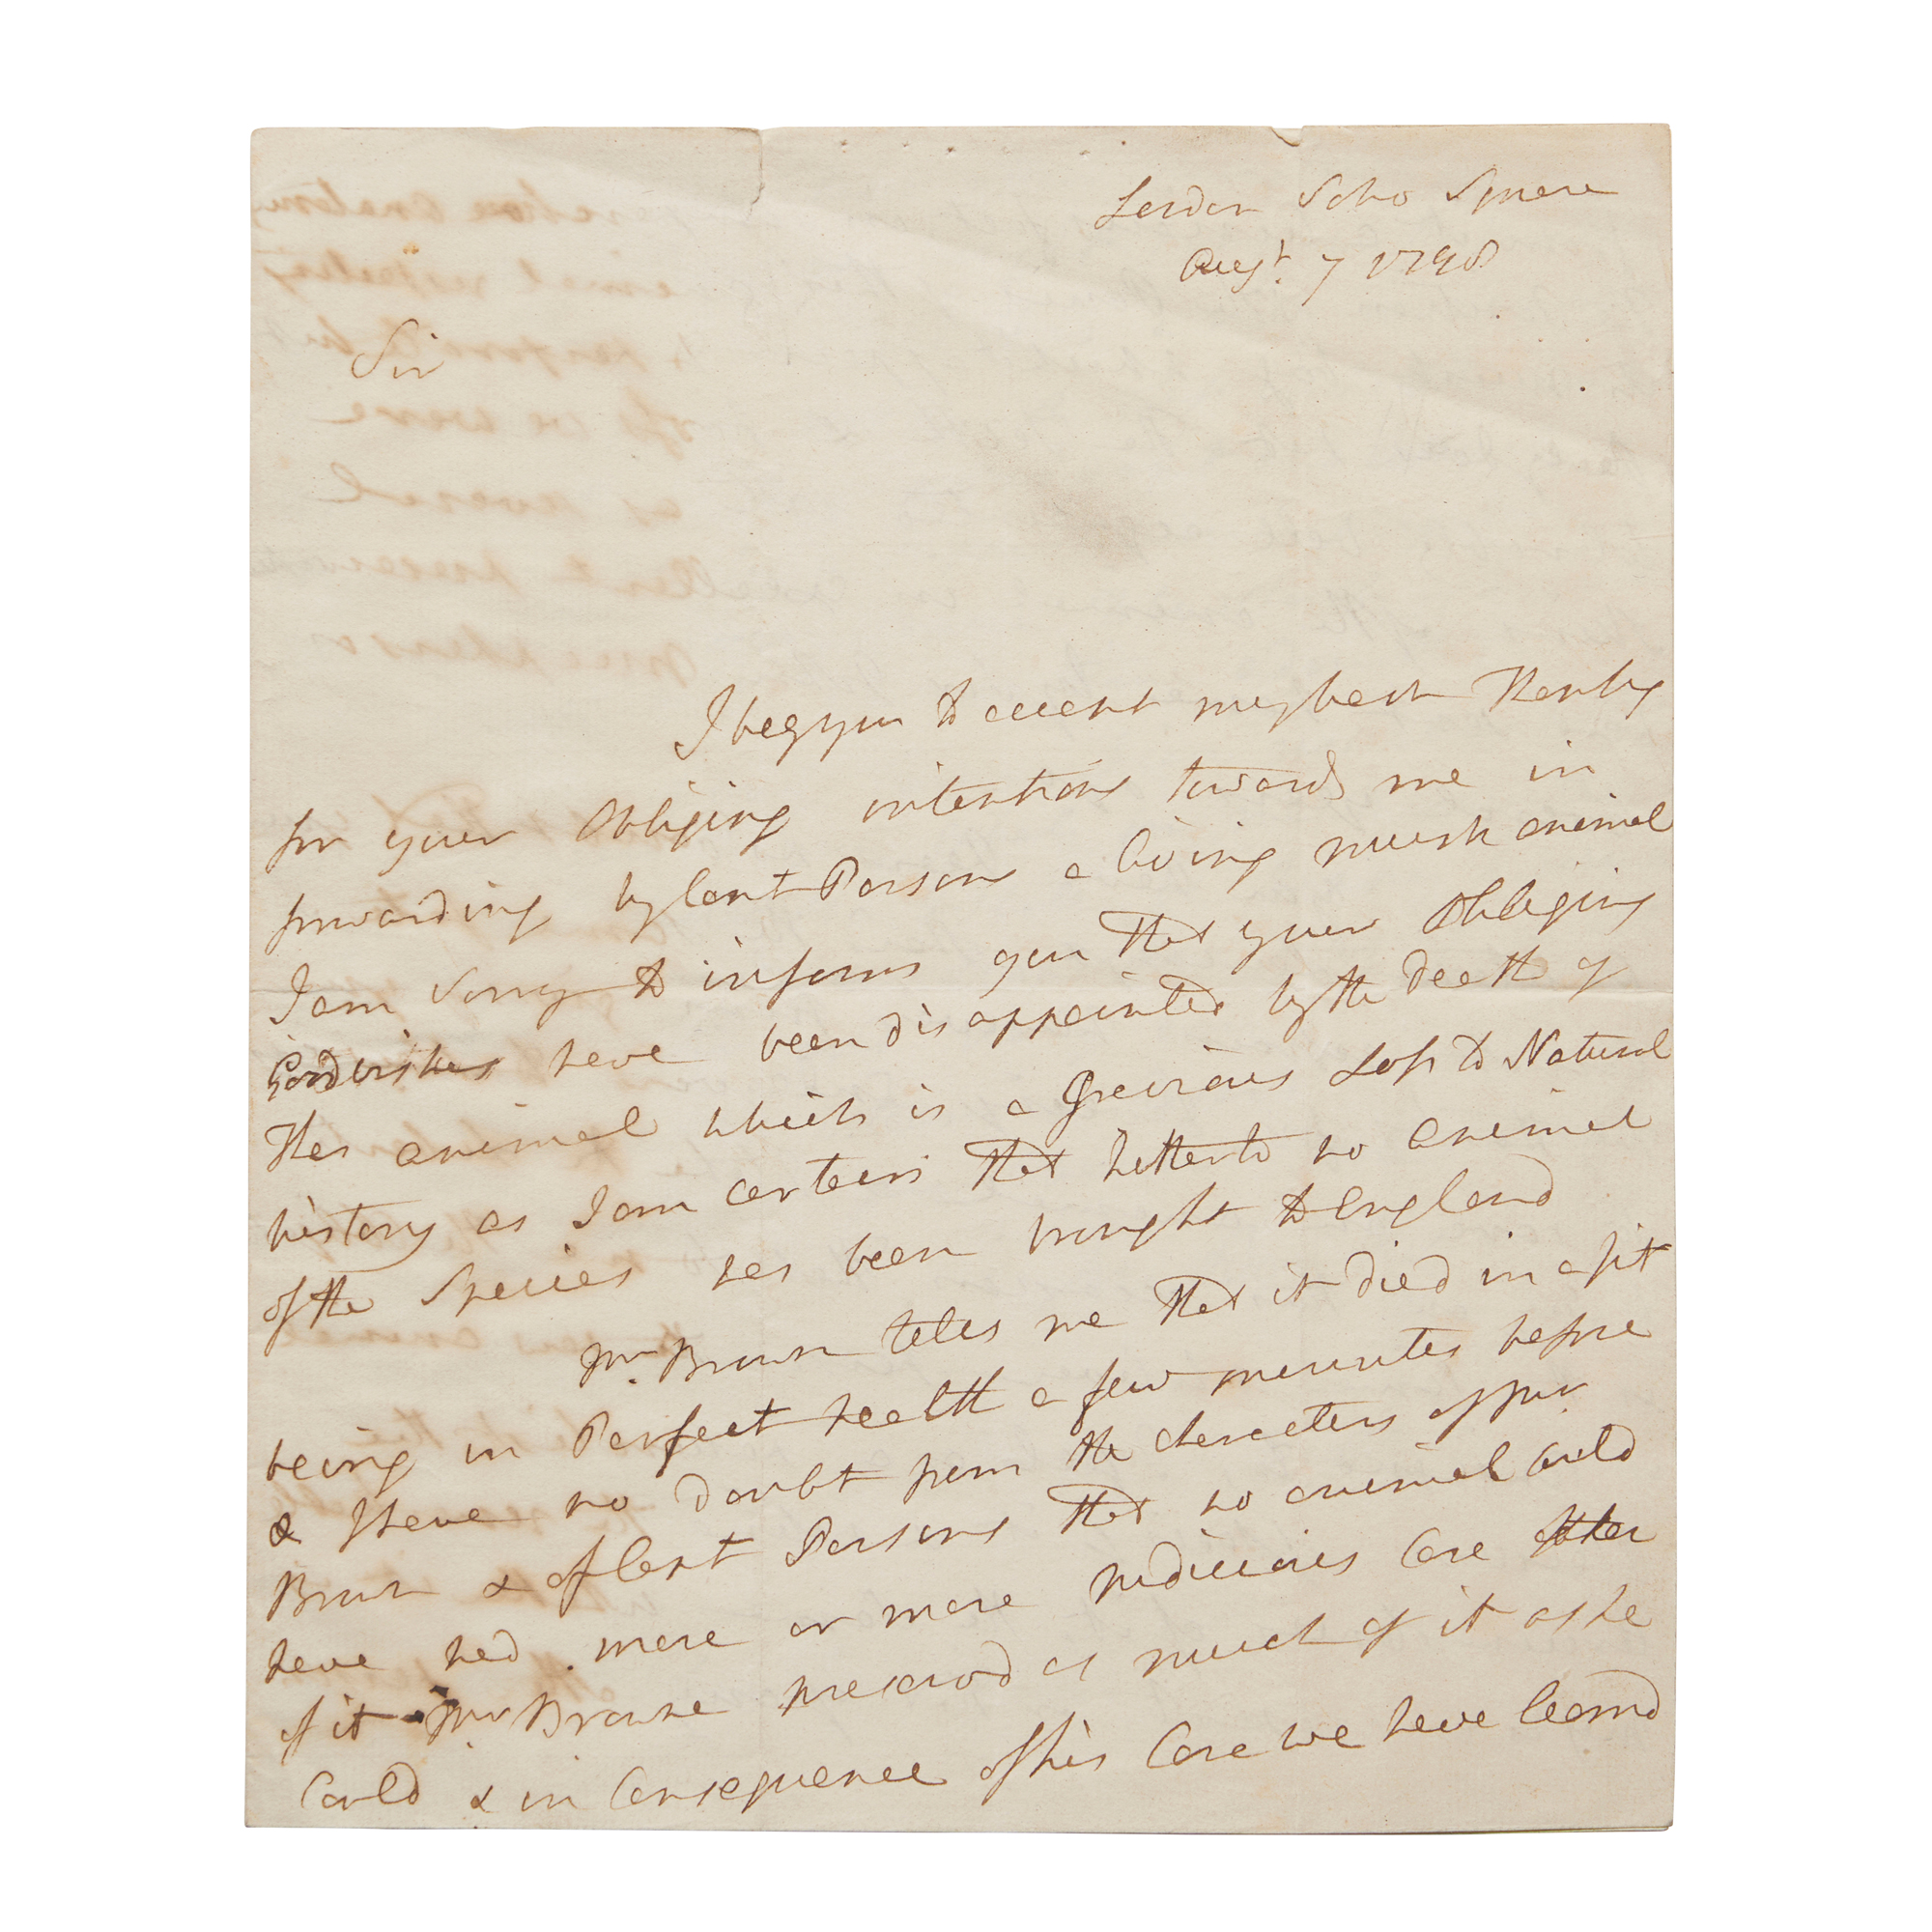 London Soho Square
Augst. 7 1798
Sir
I beg you to accept my best Thanks
for your Obliging intentions towards me in
forwarding by Capt Parsons a living musk animal
I am Sorry to inform you that your Obliging
Good wishes have been disappointed by the death of
the animal which is a Greivous Loss to Natural
history as I am certain that hitherto no animal
of the Species has been brought to England
Mr. Brown tells me that it died in a fit
being in Perfect health a few minutes before
& I have no doubt from the characters of Mr
Brown & of Capt Parsons that no animal Could
have had more or more Judicious Care taken
of it Mr. Browne preservd as much of it as he
Could & in Consequence of his Care we have learnd